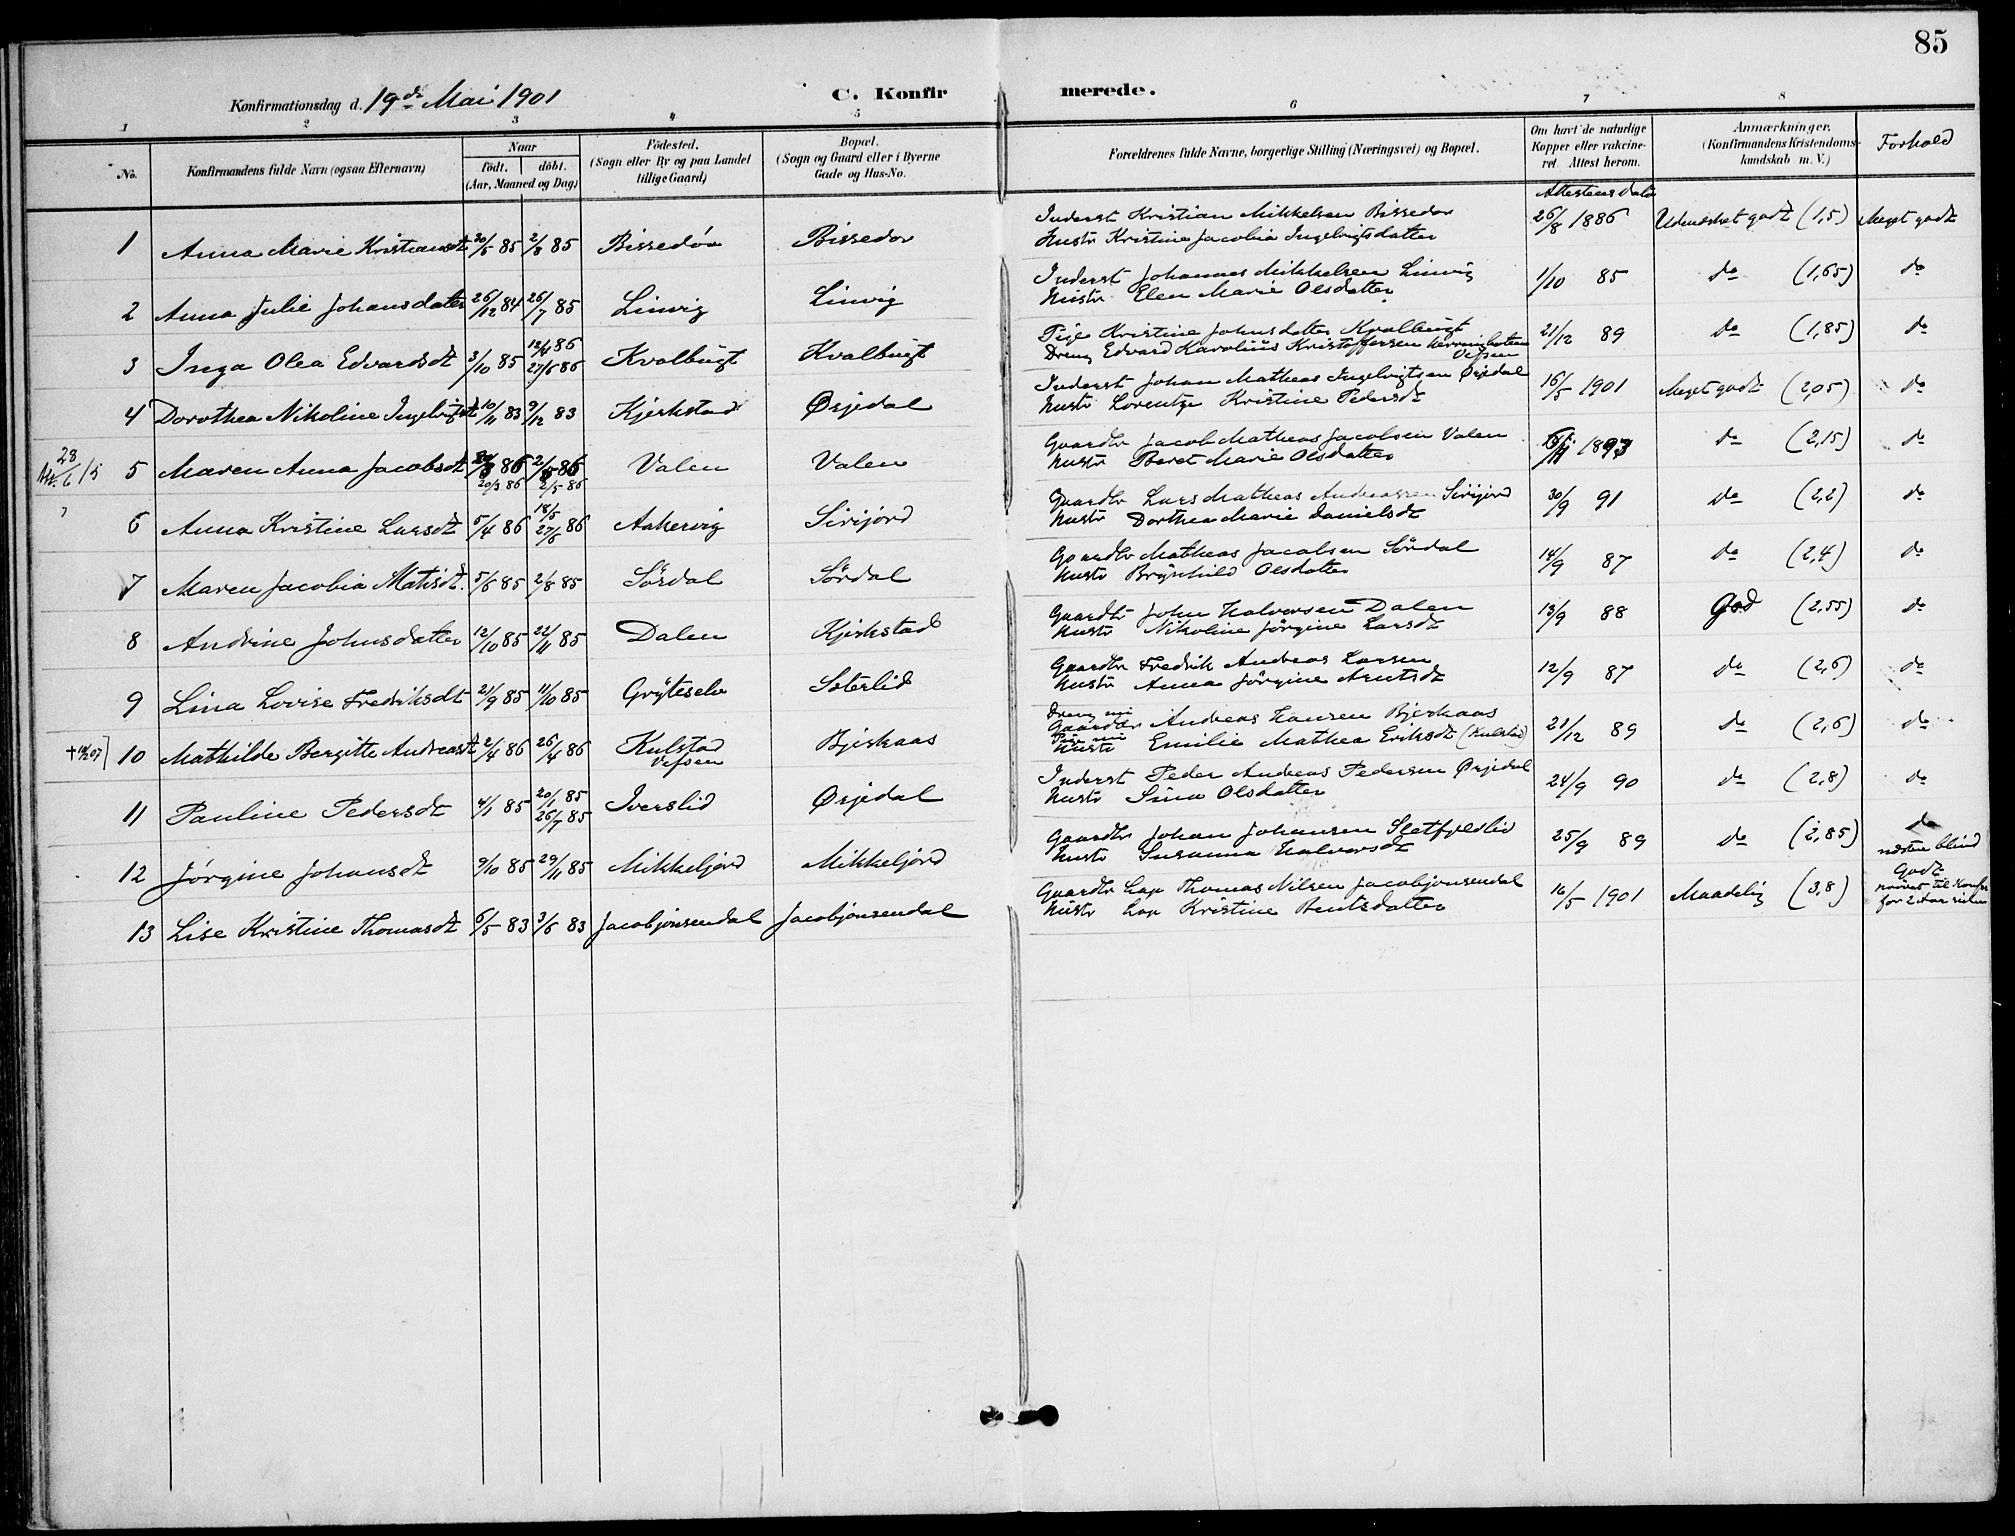 85
Konfirmationsdag d. 19de Mai 1901
C. Konfirmerede.
1 2 3 4 5 6 7 8
No. Konfirmandens fulde Navn (ogsaa Efternavn) Naar födt. döbt. (Aar, Maaned og Dag) Födested. (Sogn eller By og paa Landet tillige Gaard) Bopæl. (Sogn og Gaard eller i Byerne Gade og Hus-No. Forældrenes fulde Navne, borgerlige Stilling (Næringsvei) og Bopæl. Om havt de naturlige Kopper eller vakcineret. Attest herom. Anmærkninger. (Konfirmandens Kristendomskundskab m. V.) Forhold
Attestens dato
1 Anna Marie Kristiansdt 20/5 85 2/8 85 Bissedöa Bissedov Inderst Kristian Mikkelsen Bissedov 26/8 1886 Udmærket godt (1,5) Meget godt
Hustr Kristine Jacobia Ingebrigtsdatter
2 Anna Julie Johansdatter 26/12 84 26/7 85 Linvig Linvig Inderst Johannes Mikkelsen Linvig 1/10 85 do (1,65) do
Hustr Elen Marie Olsdatter
3 Inga Olea Edvardsdt 3/10 85 12/4 86 27/6 86 Kvalbugt Kvalbugt Pige Kristine Johnsdatter Kvalbugt 21/12 89 do (1,85) do
Dreng Edvard Karolius Kristoffersen Vefsen
4 Dorothea Nikoline Ingebrigtsdt 10/11 83 9/12 83 Kjerkstad Örjedal Inderst Johan Matheas Ingebrigtsen Örjedal 16/5 1901 Meget godt (2,05) do
Hustr Lorentze Kristine Pedersdt
28/6 15
5 Maren Anna Jacobsdt 86 86 Valen Valen Gaardbr Jacob Matheas Jacobsen Valen 1893 do (2,15) do
20/3 86 2/5 86 Hustr Beret Marie Olsdatter
6 Anna Kristine Larsdt 5/4 86 18/5 27/6 86 Aakervig Sirijord Gaardbr Lars Matheas Andreassen Sirijord 30/9 91 do (2,2) do
Hustr Dorthea Marie Danielsdt
7 Maren Jacobia Matisdt. 5/6 85 2/8 85 Sördal Sördal Gaardbr Matheas Jacobsen Sördal 14/9 87 do (2,4) do
Hustr Brynhild Olsdatter
8 Andrine Johnsdatter 12/10 85 22/11 85 Dalen Kjerkstad Gaardbr John Halvorsen Dalen 13/9 88 God (2,55) do
Hustr Nikoline Jörgine Larsdt
9 Lina Lovise Fredriksdt 21/9 85 11/10 85 Gryteselv Soterlid Gaardbr Fredrik Andreas Larsen 12/9 87 do (2,6) do
Hustr Anna Jörgine Arntsdt
10 Mathilde Bergitte Andreasdt 2/4 86 26/4 86 Kulstad Vefsen Bjerkaas Dreng nu Gaardbr Andreas Hansen Bjerkaas 21/12 89 do (2,6) do
Pige nu Hustr Emilie Mathea Eriksdt (Kulstad)
11 Pauline Pedersdt 4/1 85 20/1 85 26/7 85 Iverslid Örjedal Inderst Peder Andreas Pedersen Örjedal 24/9 90 do (2,8) do
Hustr Sina Olsdatter
12 Jørgine Johansdt 9/10 85 29/11 85 Mikkeljord Mikkeljord Gaardbr Johan Johansen Sletfjeldlid 25/9 89 do (2,85) do næsten blind
Hustr Susanna Halvorsdt
13 Lise Kristine Thomasdt 6/5 83 3/6 83 Jacobjonsendal Jacobjonsendal Gaardbr Lap Thomas Nilsen Jacobjonsendal 16/5 1901 Maadelig (3,8) Godt prövet til Konfir for 2 Aar siden
Hustr Lap Kristine Bentsdatter